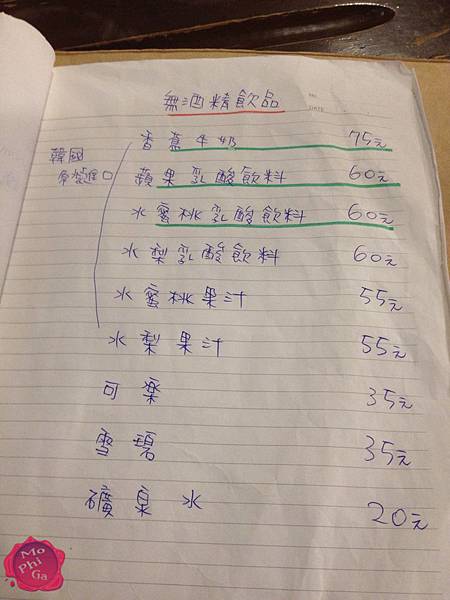 無酒精飲品
DATE
韓國
原裝進口
香蕉牛奶 75元
蘋果乳酸飲料 60元
水蜜桃乳酸飲料 60元
水梨乳酸飲料 60元
水蜜桃果汁 55元
水梨果汁 55元
可樂 35元
雪碧 35元
礦泉水 20元
Mo
Phi
Ga